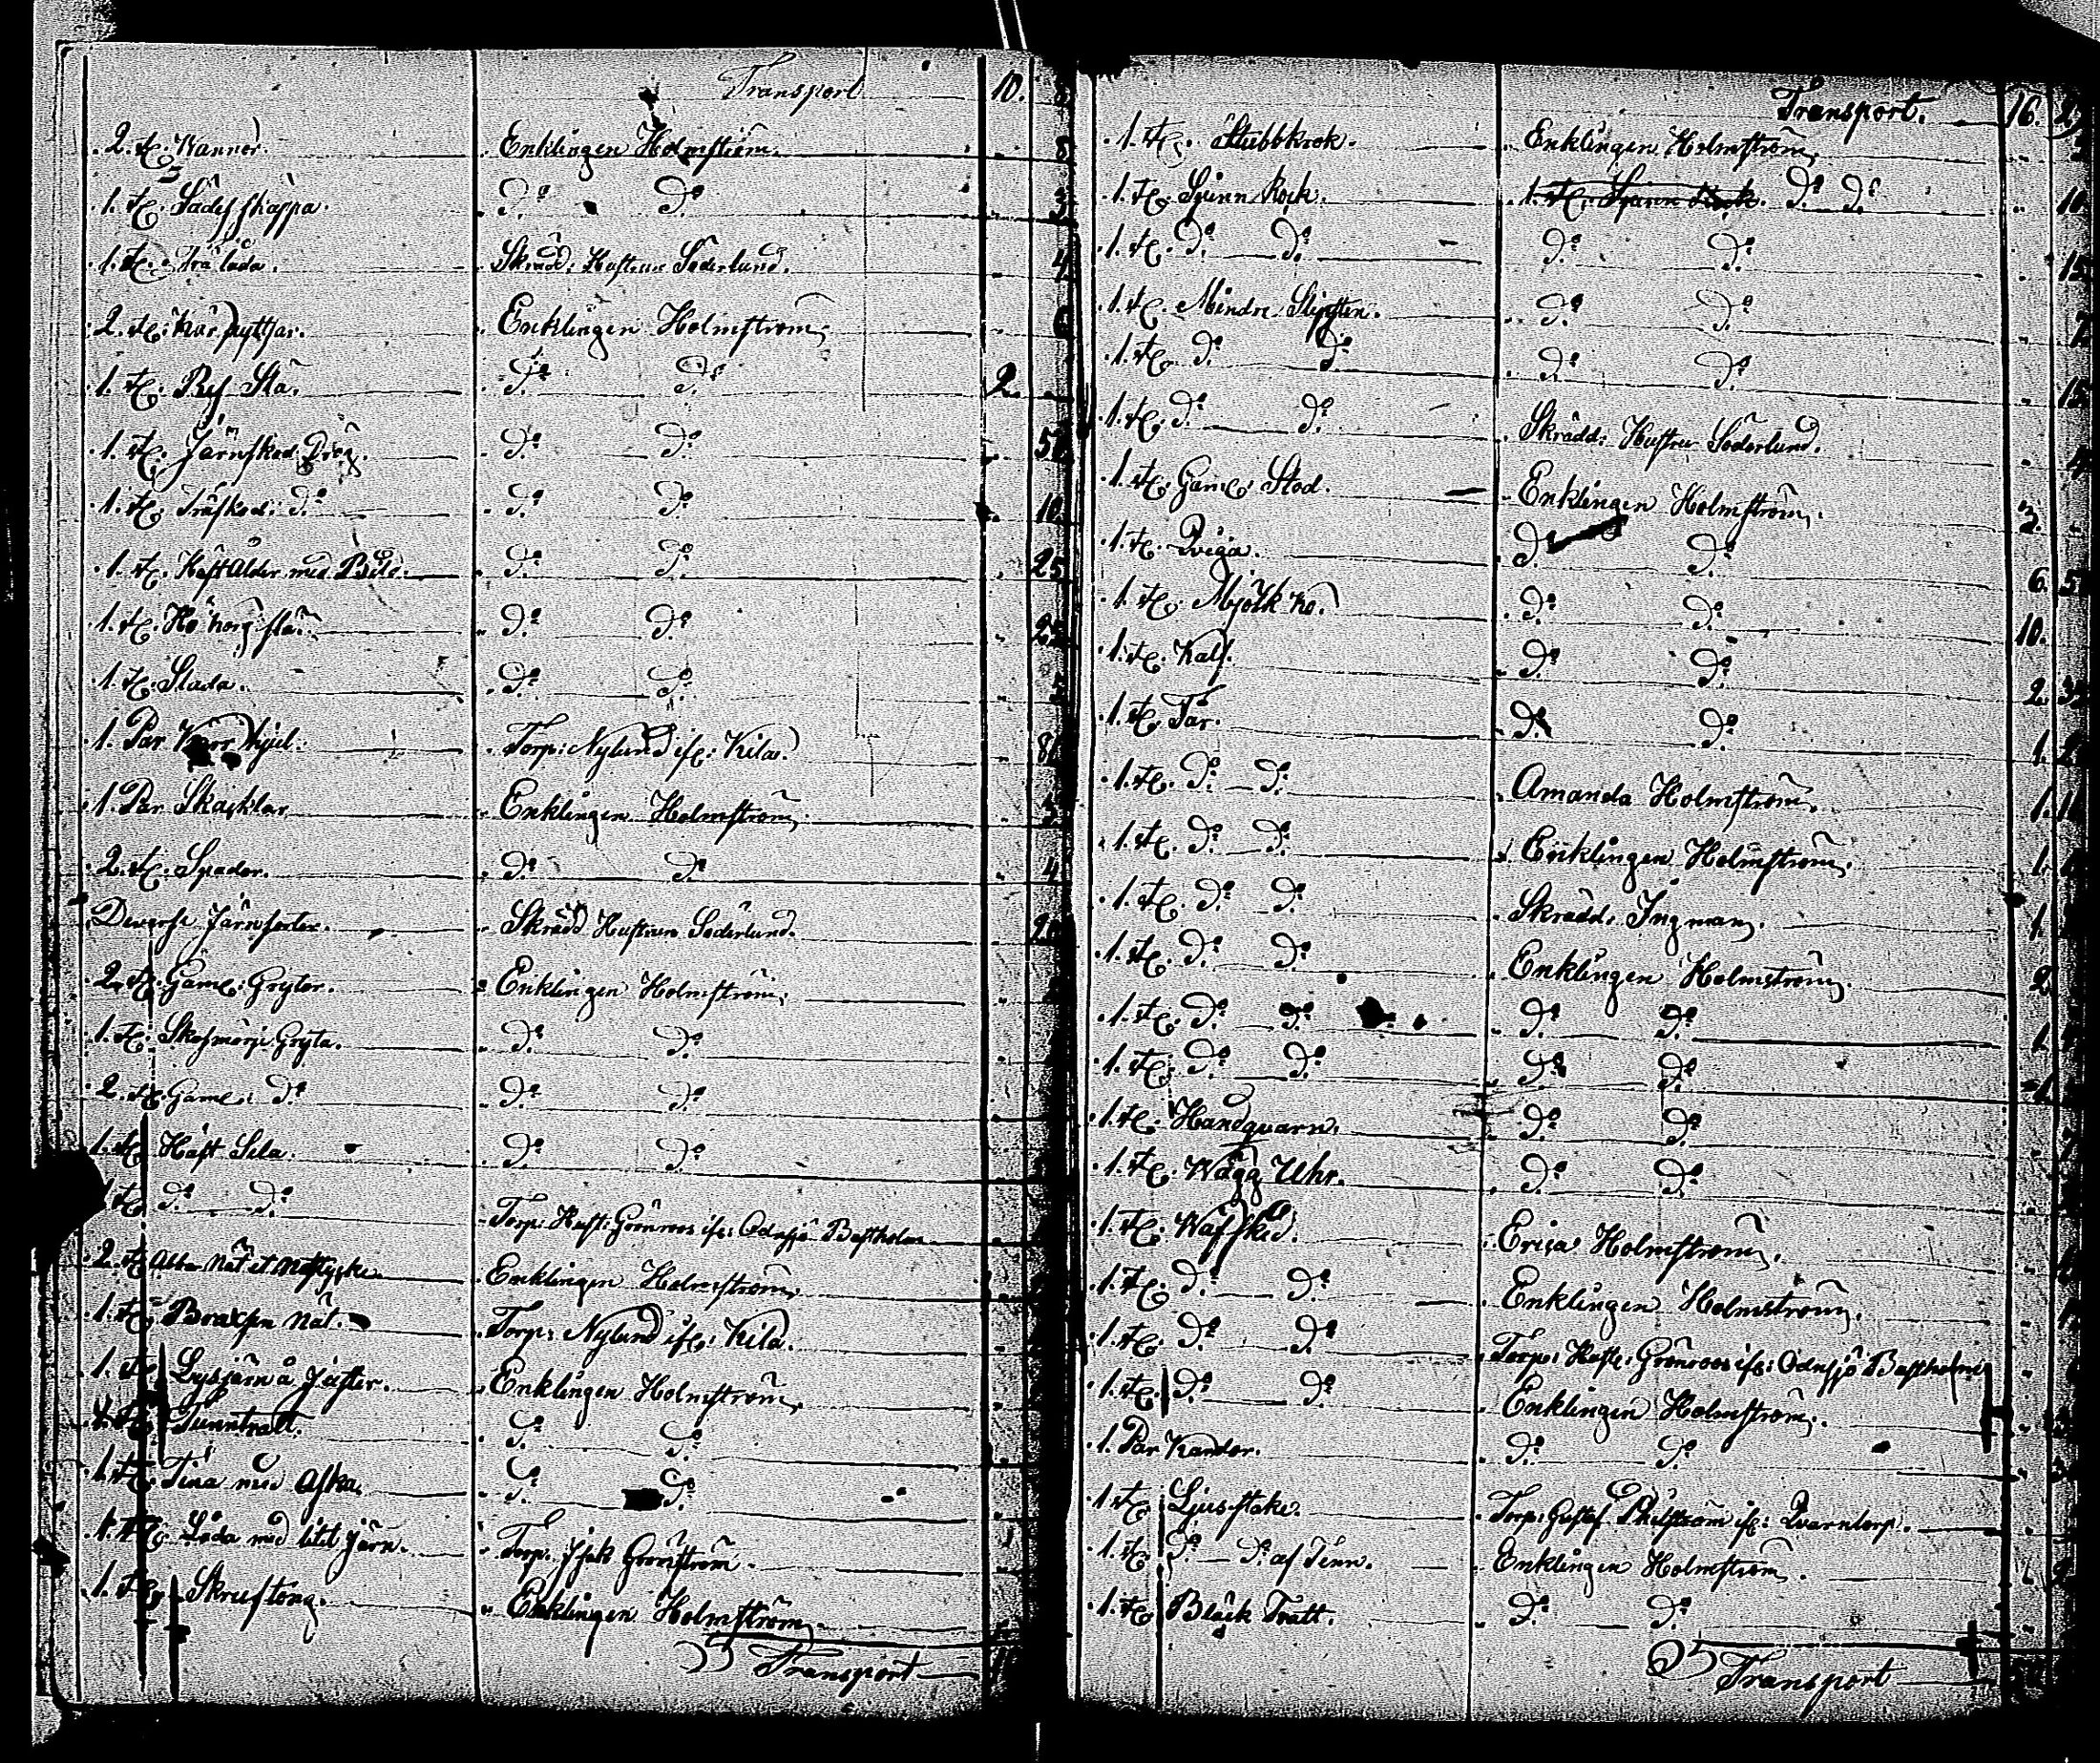 Transport 10. 8
2. st. Wannor. Enklingen Holmström. 8
1. st. Sädesskäppa. Do Do 3
1. st. Trä låda. Skrädd: Hustrun Söderlund. 4
2. st. Kar Enklingen Holmström 6
1. st. Res Sla. Do Do 2.
1. st. Järnskod Drög. Do Do 5
1. st. Träskod: Do Do Do 10
1. st. med Bild. Do Do 25
1. st. Hö Do Do 2
1. st. Slada. Do Do
1. Par hjul. Torp: Nylund ifr: Kila. 8
1. Par Skacklar Enklingen Holmström,
2. st. Spador. Do Do 4
Diverse Järnsorter. Skrädd Hustrun Söderlund. 2
2. st. Gaml: Grytor. Enklingen Holmström,
1. st. Skosmörje Gryta. Do Do
2. st. Gaml: Do Do Do
1. st. Häst Sela. Do Do
st. Do Do Torp: Hust: Grönroos ifr: Ödnsjö Bastholm
2. st. Abbor Nät et Enklingen Holmström,
1. st. Braxsen Nät. Torp: Nylund ifr: Kila.
1. st. Lysjärn å Jäster. Enklingen Holmström,
1. st. Tunntratt. Do Do
1. st. Tina med Aska. Do Do
1. st. Låda med litet järn. Torp. Isak Grönström.
1. st. Skrufstång. Enklingen Holmström,
Transport
Transport. 16. 2
1. st. Stubbkrok. Enklingen Holmström,
1. st. Spinn Rock. 1. st. Spinn Rock. Do Do 10
1. st. Do Do Do Do 12
1. st. Mindre Slipsten. Do Do 7
1. st. Do Do Do Do 15
1. st. Do Do Skrädd: Hustrun Söderlund. 4
1. st. Gaml: Stod. Enklingen Holmström, 3.
1. st. Qviga. Do Do 6. 5
1. st. Mjölk ko. Do Do 10.
1. st. Kalf. Do Do 2. 3
1. st. Får. Do Do 1. 2
1. st. Do Do Amanda Holmström, 1. 1
1. st. Do Do Enklingen Holmström. 1.
1. st. Do Do Skrädd: Ingman, 1.
1. st. Do Do Enklingen Holmström, 2
1. st. Do Do Do Do 1.
1. st. Do Do Do Do 1.
1. st. Handqvarn. Do Do
1. st. Wägg Uhr. Do Do
1. st. Wäfsked. Erica Holmström,
1. st. Do Do Enklingen Holmström,
1. st. Do Do Torp: Hust: Grönroos ifr: Ödnsjö Bastholm
1. st. Do Do Enklingen Holmström,
1. Par Kardor. Do Do
1. st. Ljusstake. Torp: Gustaf ifr: Qvarntorp.
1. st. Do Do af Tenn. Enklingen Holmström.
1. st. Bläck Tratt. Do Do
Transport